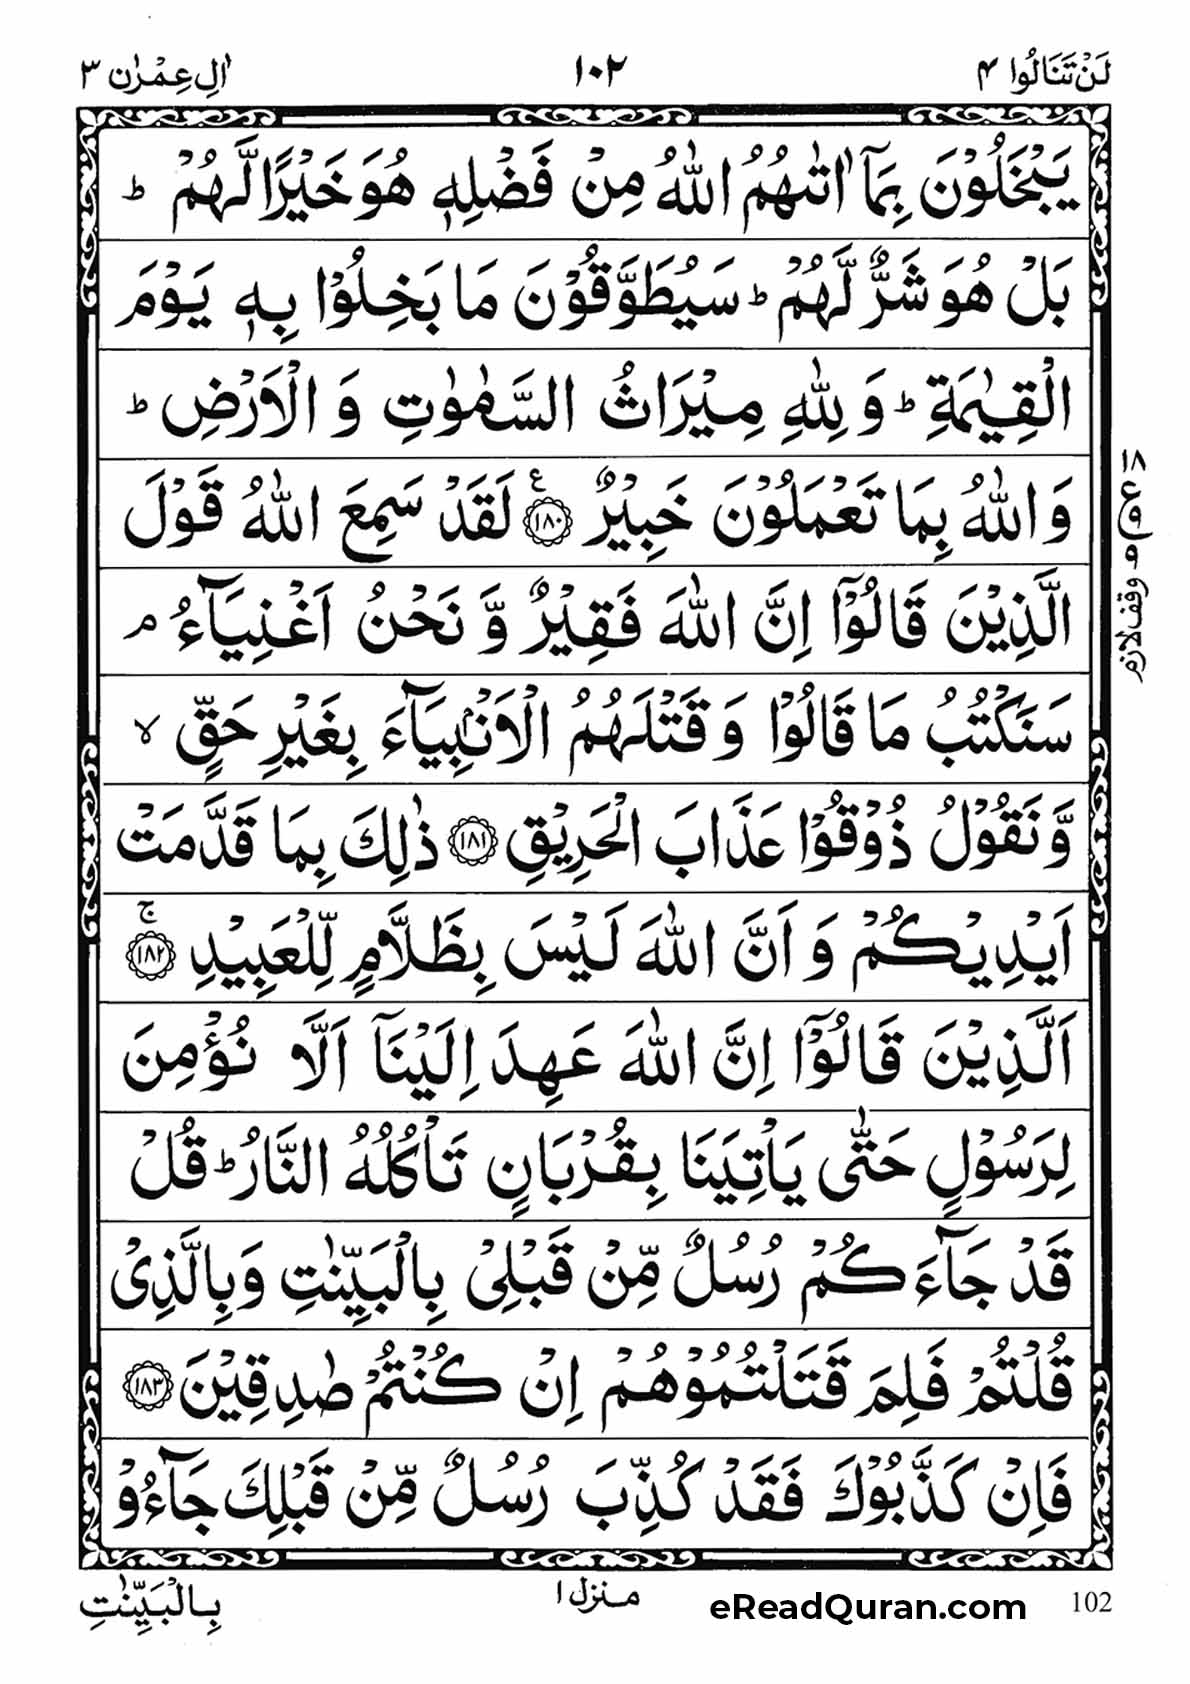 لَنْ تَنَالُوا ۴
١٠٢
اٰلِ عِمْرٰن ٣
يَبْخَلُوْنَ بِمَآ اٰتٰىهُمُ اللّٰهُ مِنْ فَضْلِهٖ هُوَ خَيْرًا لَّهُمْ ؕ
بَلْ هُوَ شَرٌّ لَّهُمْ ؕ سَيُطَوَّقُوْنَ مَا بَخِلُوْا بِهٖ يَوْمَ
الْقِيٰمَةِ ؕ وَ لِلّٰهِ مِيْرَاثُ السَّمٰوٰتِ وَ الْاَرْضِ ؕ
وَ اللّٰهُ بِمَا تَعْمَلُوْنَ خَبِيْرٌ ﴿١٨٠﴾ ع لَقَدْ سَمِعَ اللّٰهُ قَوْلَ
الَّذِيْنَ قَالُوْٓا اِنَّ اللّٰهَ فَقِيْرٌ وَّ نَحْنُ اَغْنِيَآءُ ۘ
سَنَكْتُبُ مَا قَالُوْا وَ قَتْلَهُمُ الْاَنْۢبِيَآءَ بِغَيْرِ حَقٍّ ۙ
وَّ نَقُوْلُ ذُوْقُوْا عَذَابَ الْحَرِيْقِ ﴿١٨١﴾ ذٰلِكَ بِمَا قَدَّمَتْ
اَيْدِيْكُمْ وَ اَنَّ اللّٰهَ لَيْسَ بِظَلَّامٍ لِّلْعَبِيْدِ ﴿١٨٢﴾ ۚ
اَلَّذِيْنَ قَالُوْٓا اِنَّ اللّٰهَ عَهِدَ اِلَيْنَآ اَلَّا نُؤْمِنَ
لِرَسُوْلٍ حَتّٰى يَاْتِيَنَا بِقُرْبَانٍ تَاْكُلُهُ النَّارُ ؕ قُلْ
قَدْ جَآءَكُمْ رُسُلٌ مِّنْ قَبْلِىْ بِالْبَيِّنٰتِ وَبِالَّذِىْ
قُلْتُمْ فَلِمَ قَتَلْتُمُوْهُمْ اِنْ كُنْتُمْ صٰدِقِيْنَ ﴿١٨٣﴾
فَاِنْ كَذَّبُوْكَ فَقَدْ كُذِّبَ رُسُلٌ مِّنْ قَبْلِكَ جَآءُوْ
١٨
ع
٩
٩
وقف لازم
بِالْبَيِّنٰتِ
منزل ١
eReadQuran.com
102